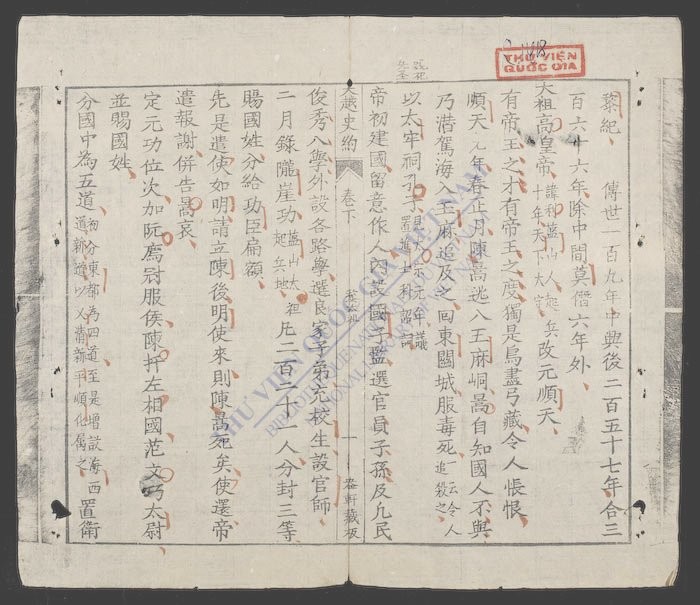 黎紀 傳世一百九年中興後二百五十七年合三
百六十六年除中間莫僭六年外
太祖高皇帝 諱利藍山人起兵十年天下大定 改元順天
有帝王之才有帝王之度獨是鳥盡弓藏令人悵恨
順天元年春正月陳暠逃入王麻峒暠自知國人不與
乃潛駕海入王麻追及之回東關城服毒死 一云令人追殺之
以太牢祠孔子
帝初建國留意作人內建國子監選官員子孫及凡民
大越史約 卷下 一
俊秀入學外設各路學選良家子弟充校生設官師
二月錄隴崖功 藍山太祖起兵地 凡二百二十一人分封三等
賜國姓分給功臣扁額
先是遣使如明請立陳後明使來則陳暠死矣使還帝
遣報謝併告暠哀
定元功位次加阮廌冠服侯陳扞左相國范文巧太尉
並賜國姓
分國中為五道 初分東都為四道至是增設海西道 置衛
THƯ VIỆN
QUỐC GIA
THƯ VIỆN QUỐC GIA VIỆT NAM